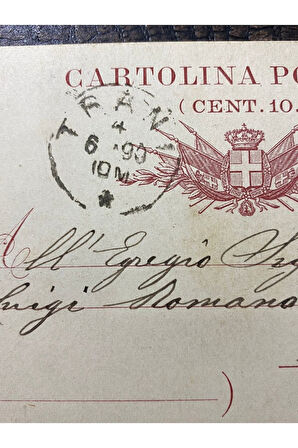 CARTOLINA PO
(CENT. 10
TRANI
4
6 90
10M
All' Egregio Sig
Luigi Romano
)